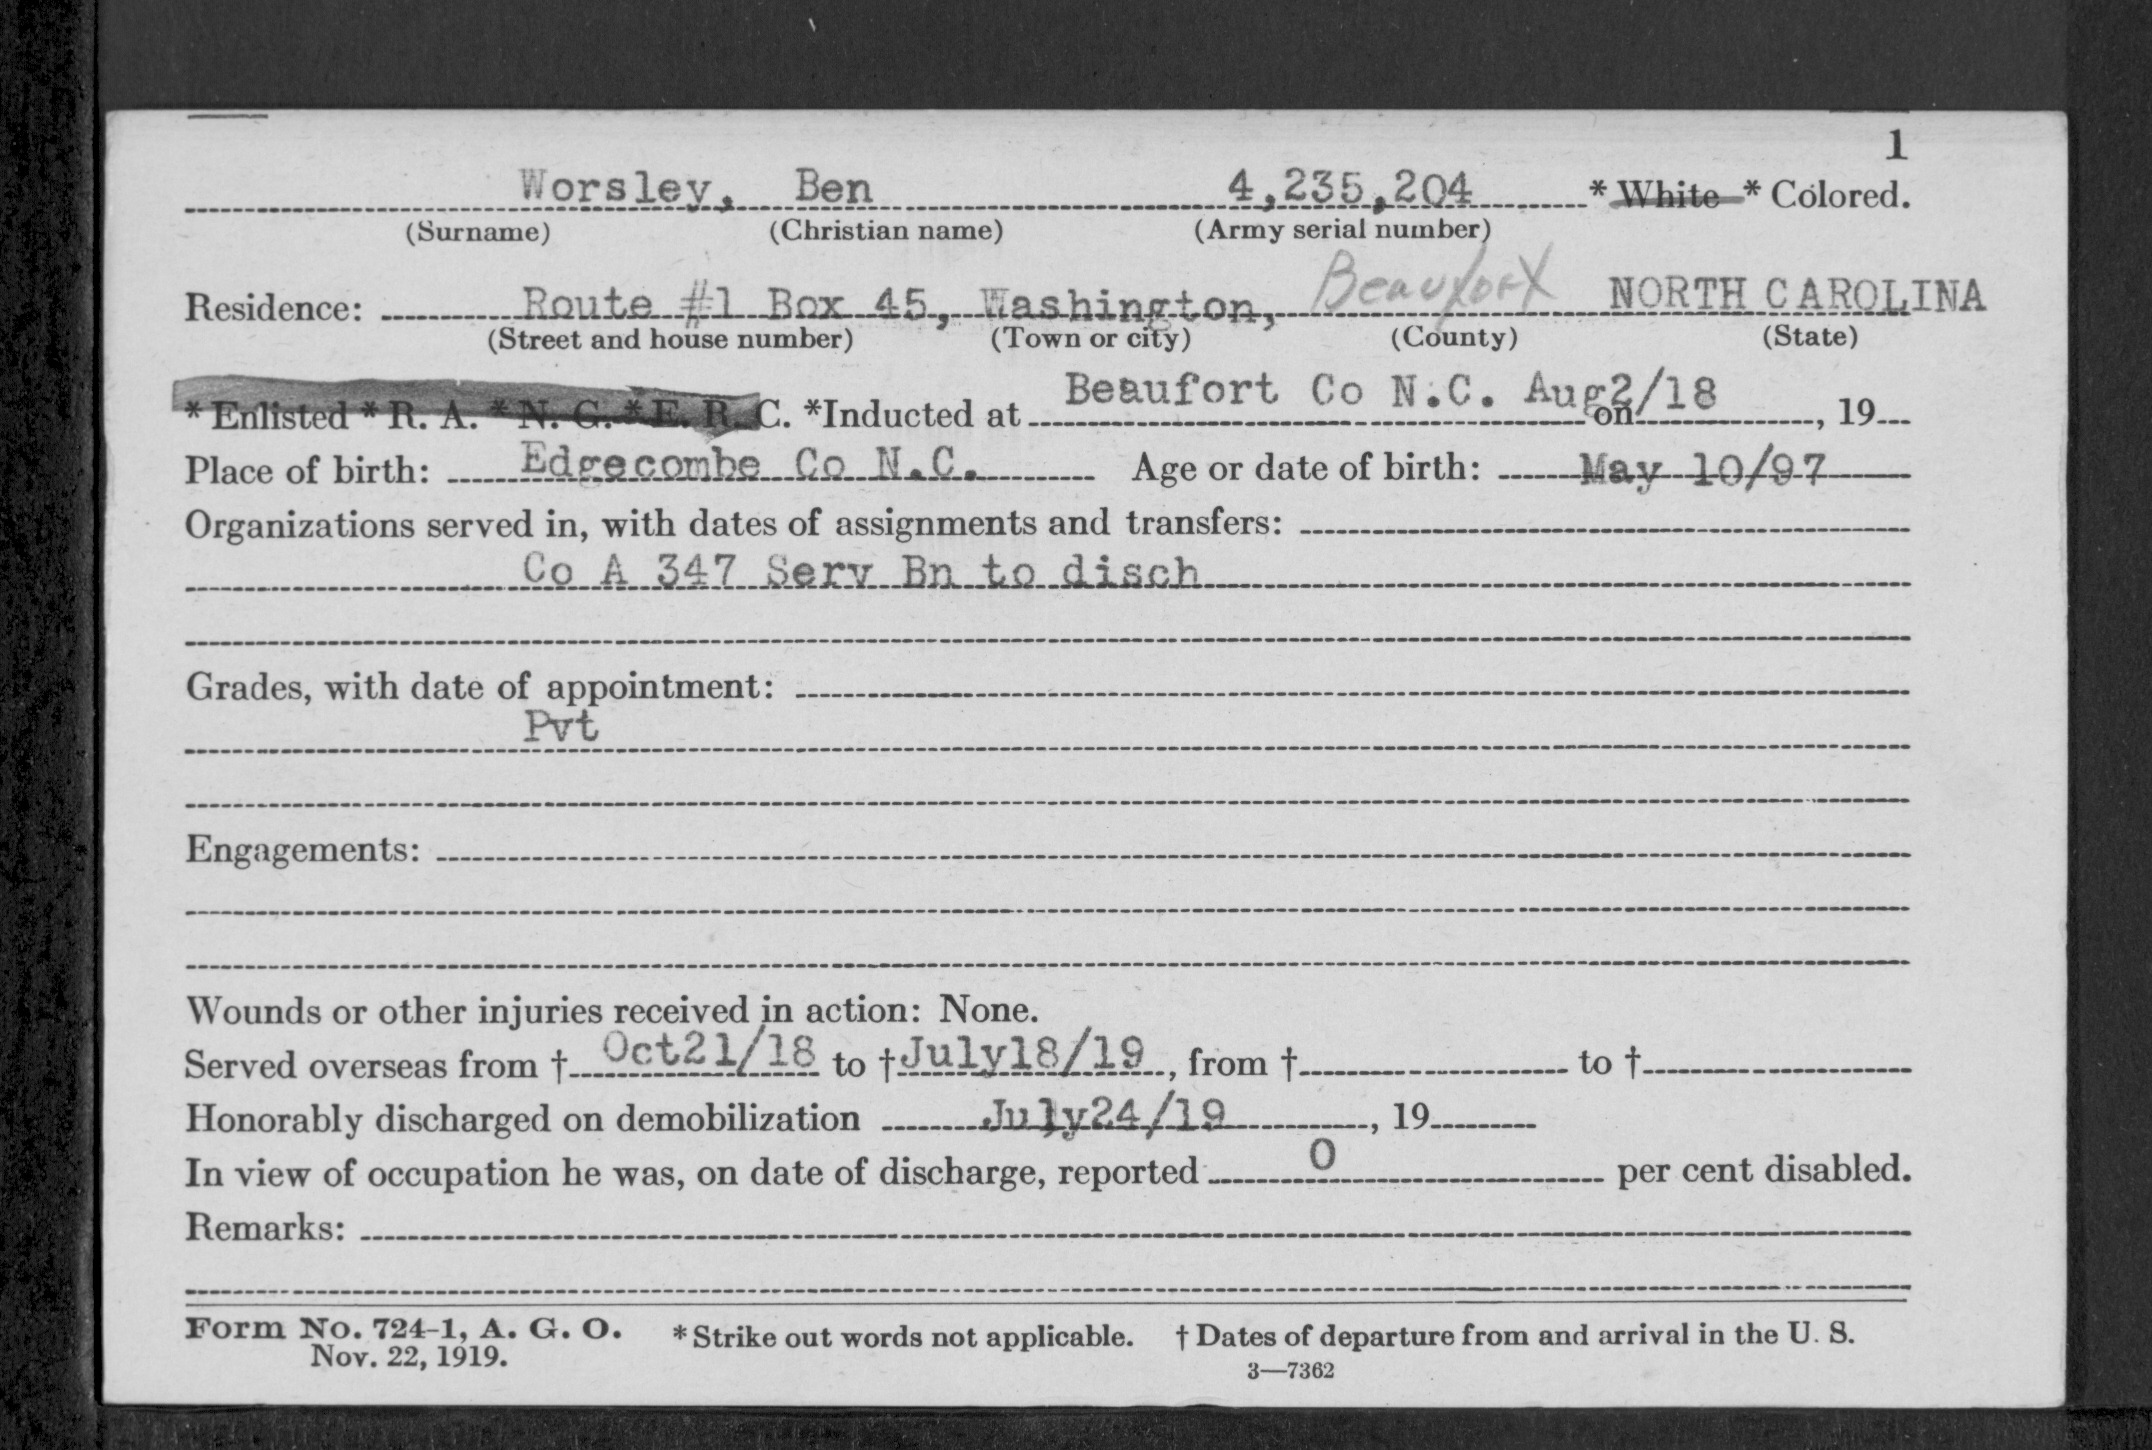 1
Worsley, Ben 4,235,204 * White * Colored.
(Surname) (Christian name) (Army serial number)
Residence: Route #1 Box 45, Washington, Beaufort NORTH CAROLINA
(Street and house number) (Town or city) (County) (State)
* Enlisted * R. A. * N. G. * E. R. C. *Inducted at Beaufort Co N.C. Aug2/18 on , 19
Place of birth: Edgecombe Co N.C. Age or date of birth: May 10/97
Organizations served in, with dates of assignments and transfers:
Co A 347 Serv Bn to disch
Grades, with date of appointment:
Pvt
Engagements:
Wounds or other injuries received in action: None.
Served overseas from † Oct21/18 to † July18/19, from † to †
Honorably discharged on demobilization July24/19, 19
In view of occupation he was, on date of discharge, reported 0 per cent disabled.
Remarks:
Form No. 724-1, A. G. O. * Strike out words not applicable. † Dates of departure from and arrival in the U. S.
Nov. 22, 1919.
3—7362